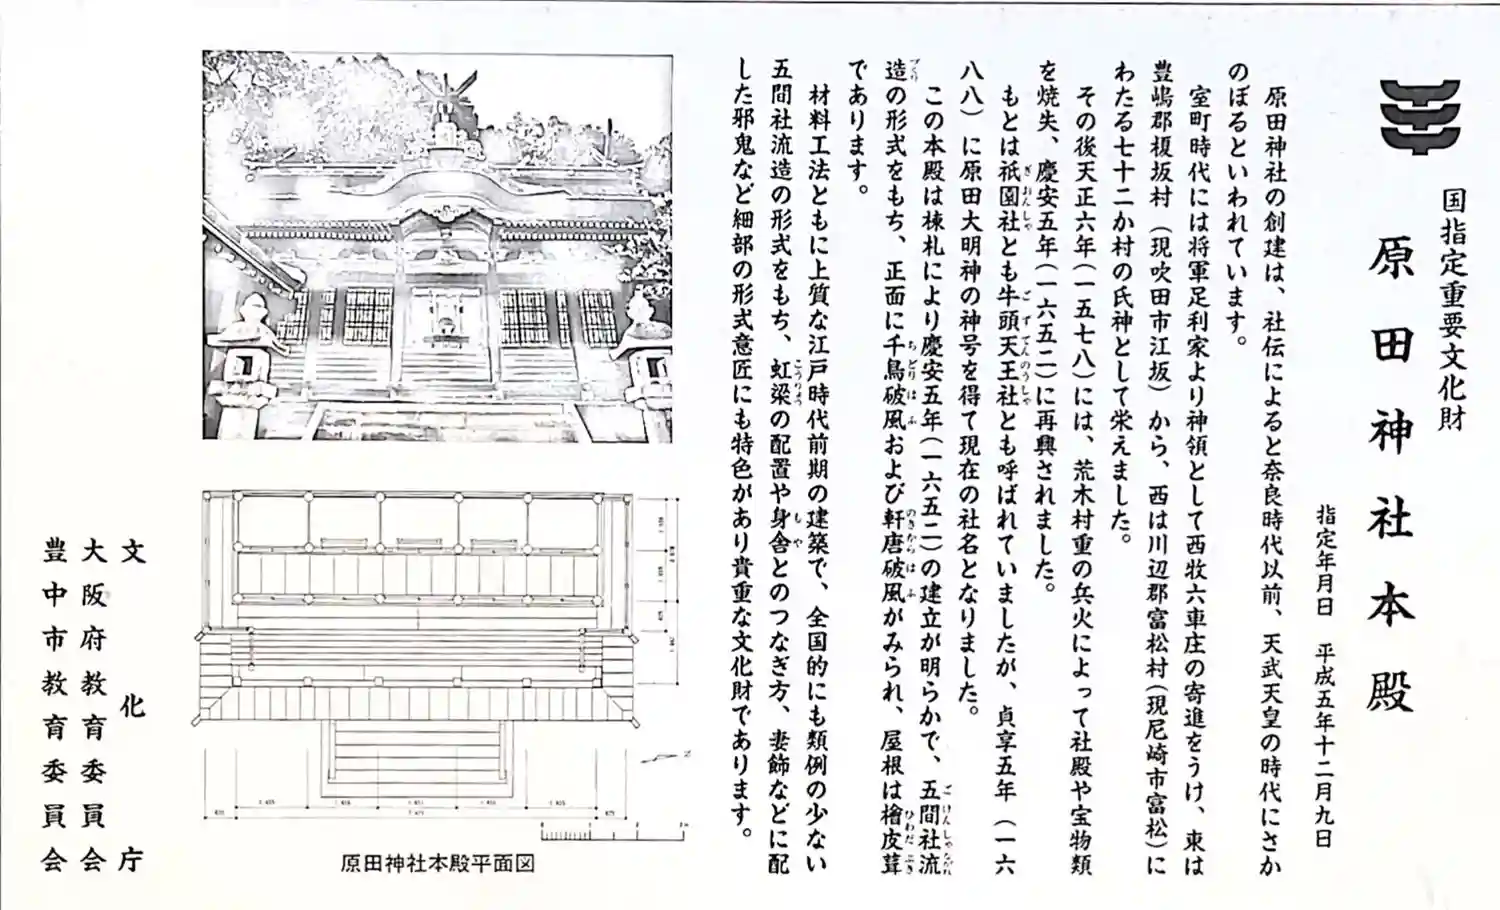 国指定重要文化財
原田神社本殿
指定年月日　平成五年十二月九日
原田神社の創建は、社伝によると奈良時代以前、天武天皇の時代にさか
のぼるといわれています。
室町時代には将軍足利家より神領として西牧六車庄の寄進をうけ、東は
豊嶋郡榎坂村（現吹田市江坂）から、西は川辺郡富松村（現尼崎市富松）に
わたる七十二か村の氏神として栄えました。
その後天正六年（一五七八）には、荒木村重の兵火によって社殿や宝物類
を焼失、慶安五年（一六五二）に再興されました。
もとは祇園社とも牛頭天王社とも呼ばれていましたが、貞享五年（一六
八八）に原田大明神の神号を得て現在の社名となりました。
この本殿は棟札により慶安五年（一六五二）の建立が明らかで、五間社流
造の形式をもち、正面に千鳥破風および軒唐破風がみられ、屋根は檜皮葺
であります。
材料工法ともに上質な江戸時代前期の建築で、全国的にも類例の少ない
五間社流造の形式をもち、虹梁の配置や身舎とのつなぎ方、妻飾などに配
した邪鬼など細部の形式意匠にも特色があり貴重な文化財であります。
原田神社本殿平面図
文化庁
大阪府教育委員会
豊中市教育委員会